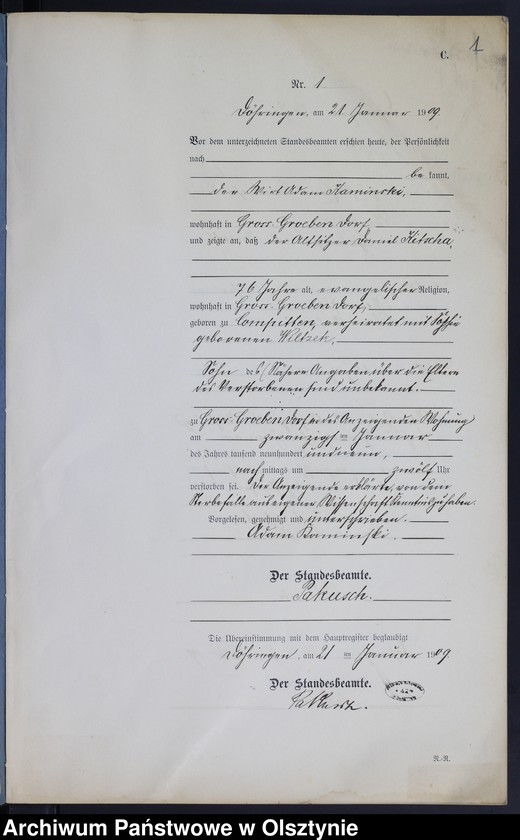 1
C.
Nr. 1.
Döhringen, am 21 Januar 1909.
Vor dem unterzeichneten Standesbeamten erschien heute, der Persönlichkeit
nach
be kannt,
der Wirt Adam Kaminski,
wohnhaft in Gross Groeben Dorf
und zeigte an, daß der Altsitzer Daniel Kitscha,
76 Jahre alt, evangelischer Religion,
wohnhaft in Gross Groeben Dorf,
geboren zu Comsutten, verheiratet mit
geborenen Wiltzek,
Sohn des (Nähere Angaben über die Eltern
des Verstorbenen sind unbekannt.
zu Gross Groeben Dorf in des Anzeigenden Wohnung
am zwanzigsten Januar
des Jahres tausend neunhundert und neun,
nach mittags um zwölf Uhr
verstorben sei. Der Anzeigende erklärte, von dem
Sterbefalle aus eigener Wissenschaft Kenntnis zu haben.
Vorgelesen, genehmigt und unterschrieben.
Adam Kaminski.
Der Standesbeamte.
Pakusch.
Die Übereinstimmung mit dem Hauptregister beglaubigt
Döhringen, am 21 ten Januar 1909.
Der Standesbeamte.
Pakusch.
N.-R.
Archiwum Państwowe w Olsztynie